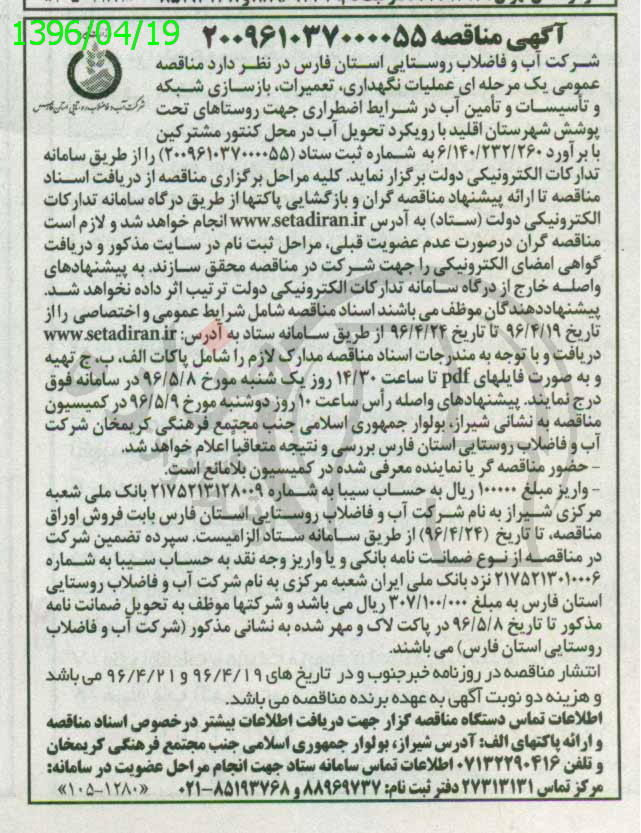 1396/04/19
آگهی مناقصه ۲۰۰۹۶۱۰۳۷۰۰۰۰۵۵
شرکت آب و فاضلاب روستایی استان فارس در نظر دارد مناقصه
عمومی یک مرحله ای عملیات نگهداری، تعمیرات، بازسازی شبکه
و تأسیسات و تأمین آب در شرایط اضطراری جهت روستاهای تحت
شرکت آب و فاضلاب روستایی استان فارس
پوشش شهرستان اقلید با رویکرد تحویل آب در محل کنتور مشترکین
با برآورد ۶/۱۴۰/۲۳۲/۲۶۰ به شماره ثبت ستاد (۲۰۰۹۶۱۰۳۷۰۰۰۰۵۵) را از طریق سامانه
تدارکات الکترونیکی دولت برگزار نماید. کلیه مراحل برگزاری مناقصه از دریافت اسناد
مناقصه تا ارائه پیشنهاد مناقصه گران و بازگشایی پاکتها از طریق درگاه سامانه تدارکات
الکترونیکی دولت (ستاد) به آدرس www.setadiran.ir انجام خواهد شد و لازم است
مناقصه گران درصورت عدم عضویت قبلی، مراحل ثبت نام در سایت مذکور و دریافت
گواهی امضای الکترونیکی را جهت شرکت در مناقصه محقق سازند. به پیشنهادهای
واصله خارج از درگاه سامانه تدارکات الکترونیکی دولت ترتیب اثر داده نخواهد شد.
پیشنهاددهندگان موظف می باشند اسناد مناقصه شامل شرایط عمومی و اختصاصی را از
تاریخ ۹۶/۴/۱۹ تا تاریخ ۹۶/۴/۲۴ از طریق سامانه ستاد به آدرس: www.setadiran.ir
دریافت و با توجه به مندرجات اسناد مناقصه مدارک لازم را شامل پاکات الف، ب، ج تهیه
و به صورت فایلهای pdf تا ساعت ۱۴/۳۰ روز یک شنبه مورخ ۹۶/۵/۸ در سامانه فوق
درج نمایند. پیشنهادهای واصله رأس ساعت ۱۰ روز دوشنبه مورخ ۹۶/۵/۹ در کمیسیون
مناقصه به نشانی شیراز، بولوار جمهوری اسلامی جنب مجتمع فرهنگی کریمخان شرکت
آب و فاضلاب روستایی استان فارس بررسی و نتیجه متعاقبا اعلام خواهد شد.
- حضور مناقصه گر یا نماینده معرفی شده در کمیسیون بلامانع است.
- واریز مبلغ ۱۰۰۰۰۰ ریال به حساب سیبا به شماره ۲۱۷۵۲۱۳۱۲۸۰۰۹ بانک ملی شعبه
مرکزی شیراز به نام شرکت آب و فاضلاب روستایی استان فارس بابت فروش اوراق
مناقصه، تا تاریخ (۹۶/۴/۲۴) از طریق سامانه ستاد الزامیست. سپرده تضمین شرکت
در مناقصه از نوع ضمانت نامه بانکی و یا واریز وجه نقد به حساب سیبا به شماره
۲۱۷۵۲۱۳۰۱۰۰۰۶ نزد بانک ملی ایران شعبه مرکزی به نام شرکت آب و فاضلاب روستایی
استان فارس به مبلغ ۳۰۷/۱۰۰/۰۰۰ ریال می باشد و شرکتها موظف به تحویل ضمانت نامه
مذکور تا تاریخ ۹۶/۵/۸ در پاکت لاک و مهر شده به نشانی مذکور (شرکت آب و فاضلاب
روستایی استان فارس) می باشند.
انتشار مناقصه در روزنامه خبرجنوب و در تاریخ های ۹۶/۴/۱۹ و ۹۶/۴/۲۱ می باشد
و هزینه دو نوبت آگهی به عهده برنده مناقصه می باشد.
اطلاعات تماس دستگاه مناقصه گزار جهت دریافت اطلاعات بیشتر درخصوص اسناد مناقصه
و ارائه پاکتهای الف: آدرس شیراز، بولوار جمهوری اسلامی جنب مجتمع فرهنگی کریمخان
و تلفن ۰۷۱۳۲۲۹۰۴۱۶ اطلاعات تماس سامانه ستاد جهت انجام مراحل عضویت در سامانه:
مرکز تماس ۲۷۳۱۳۱۳۱ دفتر ثبت نام: ۸۸۹۶۹۷۳۷ و ۸۵۱۹۳۷۶۸-۰۲۱ «۱۲۸۰-۱۰۵»